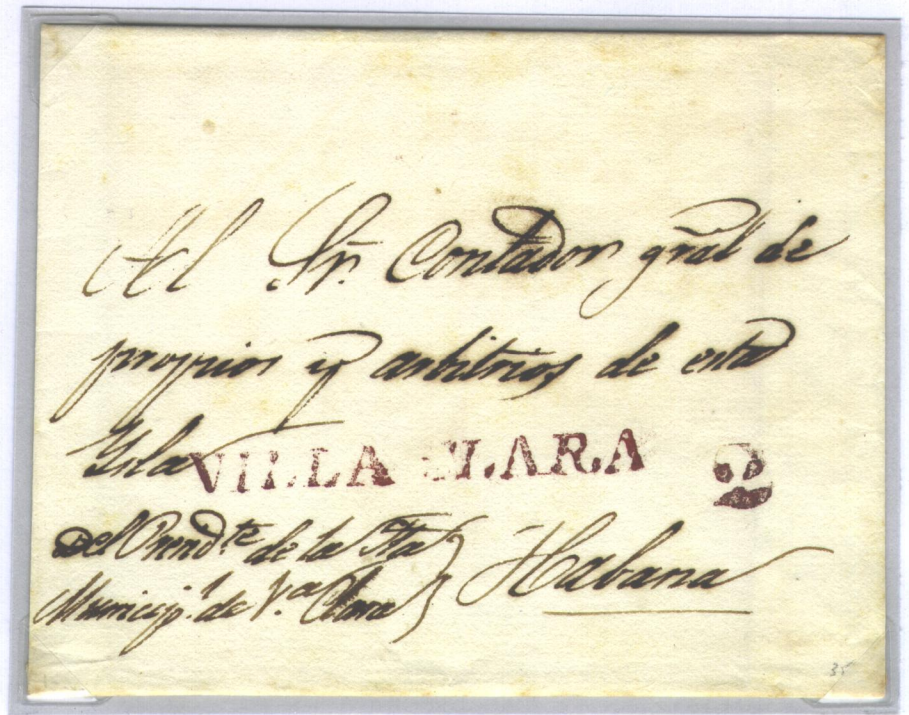 Al Sr. Contador gral de
propios y arbitrios de esta
Ysla
VILLA CLARA 2
Del Presid.te de la Jta
Municip.l de V.a Clara } Habana
35